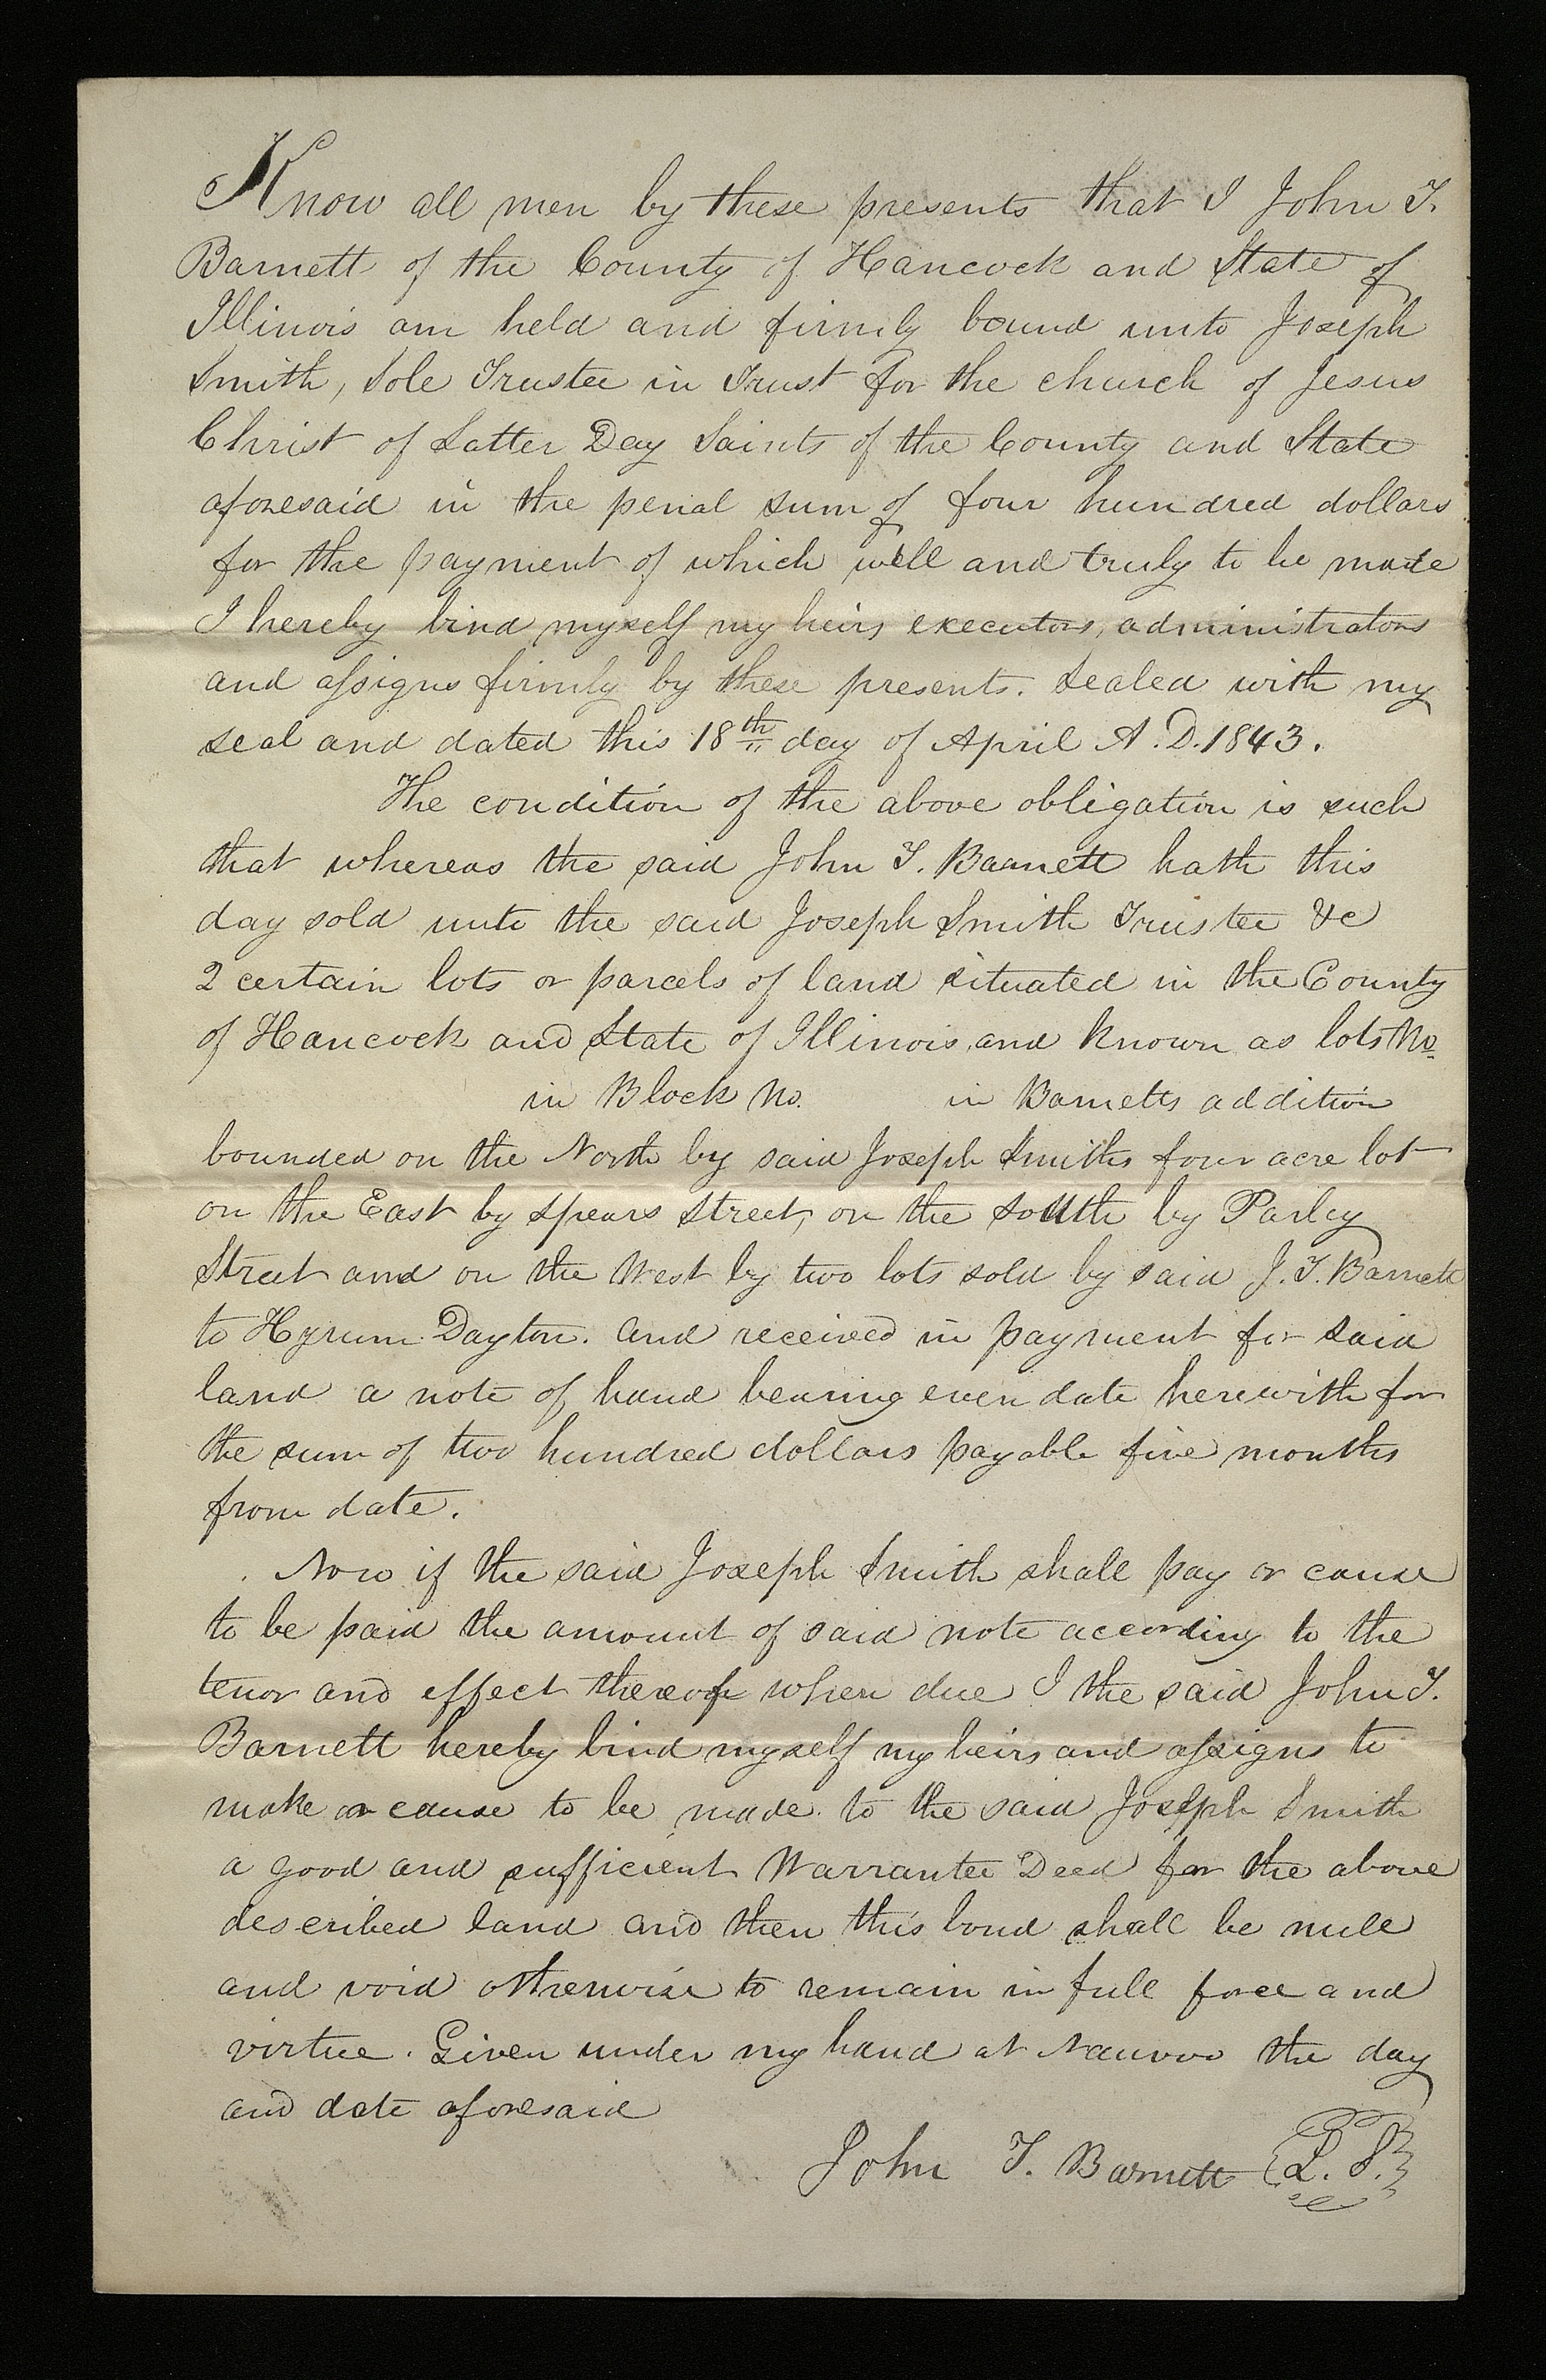 Know all men by these presents that I John T.
Barnett of the County of Hancock and State of
Illinois am held and firmly bound unto Joseph
Smith, Sole Trustee in Trust for the church of Jesus
Christ of Latter Day Saints of the County and State
aforesaid in the penal sum of four hundred dollars
for the payment of which well and truly to be made
I hereby bind myself my heirs executors, administrators
and assigns firmly by these presents. Sealed with my
seal and dated this 18th day of April A.D. 1843.
The condition of the above obligation is such
that whereas the said John T. Barnett hath this
day sold unto the said Joseph Smith Trustee &c
2 certain lots or parcels of land situated in the County
of Hancock and State of Illinois, and known as lots No.
in Block No. in Barnetts addition
bounded on the North by said Joseph Smiths four acre lot
on the East by Spears Street, on the South by Parley
Street and on the West by two lots sold by said J. T. Barnett
to Hyrum Dayton. and received in payment for said
land a note of hand bearing even date herewith for
the sum of two hundred dollars payable five months
from date.
Now if the said Joseph Smith shall pay or cause
to be paid the amount of said note according to the
tenor and effect thereof when due I the said John T.
Barnett hereby bind myself my heirs and assigns to
make or cause to be made to the said Joseph Smith
a good and sufficient Warrantee Deed for the above
described land and then this bond shall be null
and void otherwise to remain in full force and
virtue. Given under my hand at Nauvoo the day
and date aforesaid
John T. Barnett {L. S.}